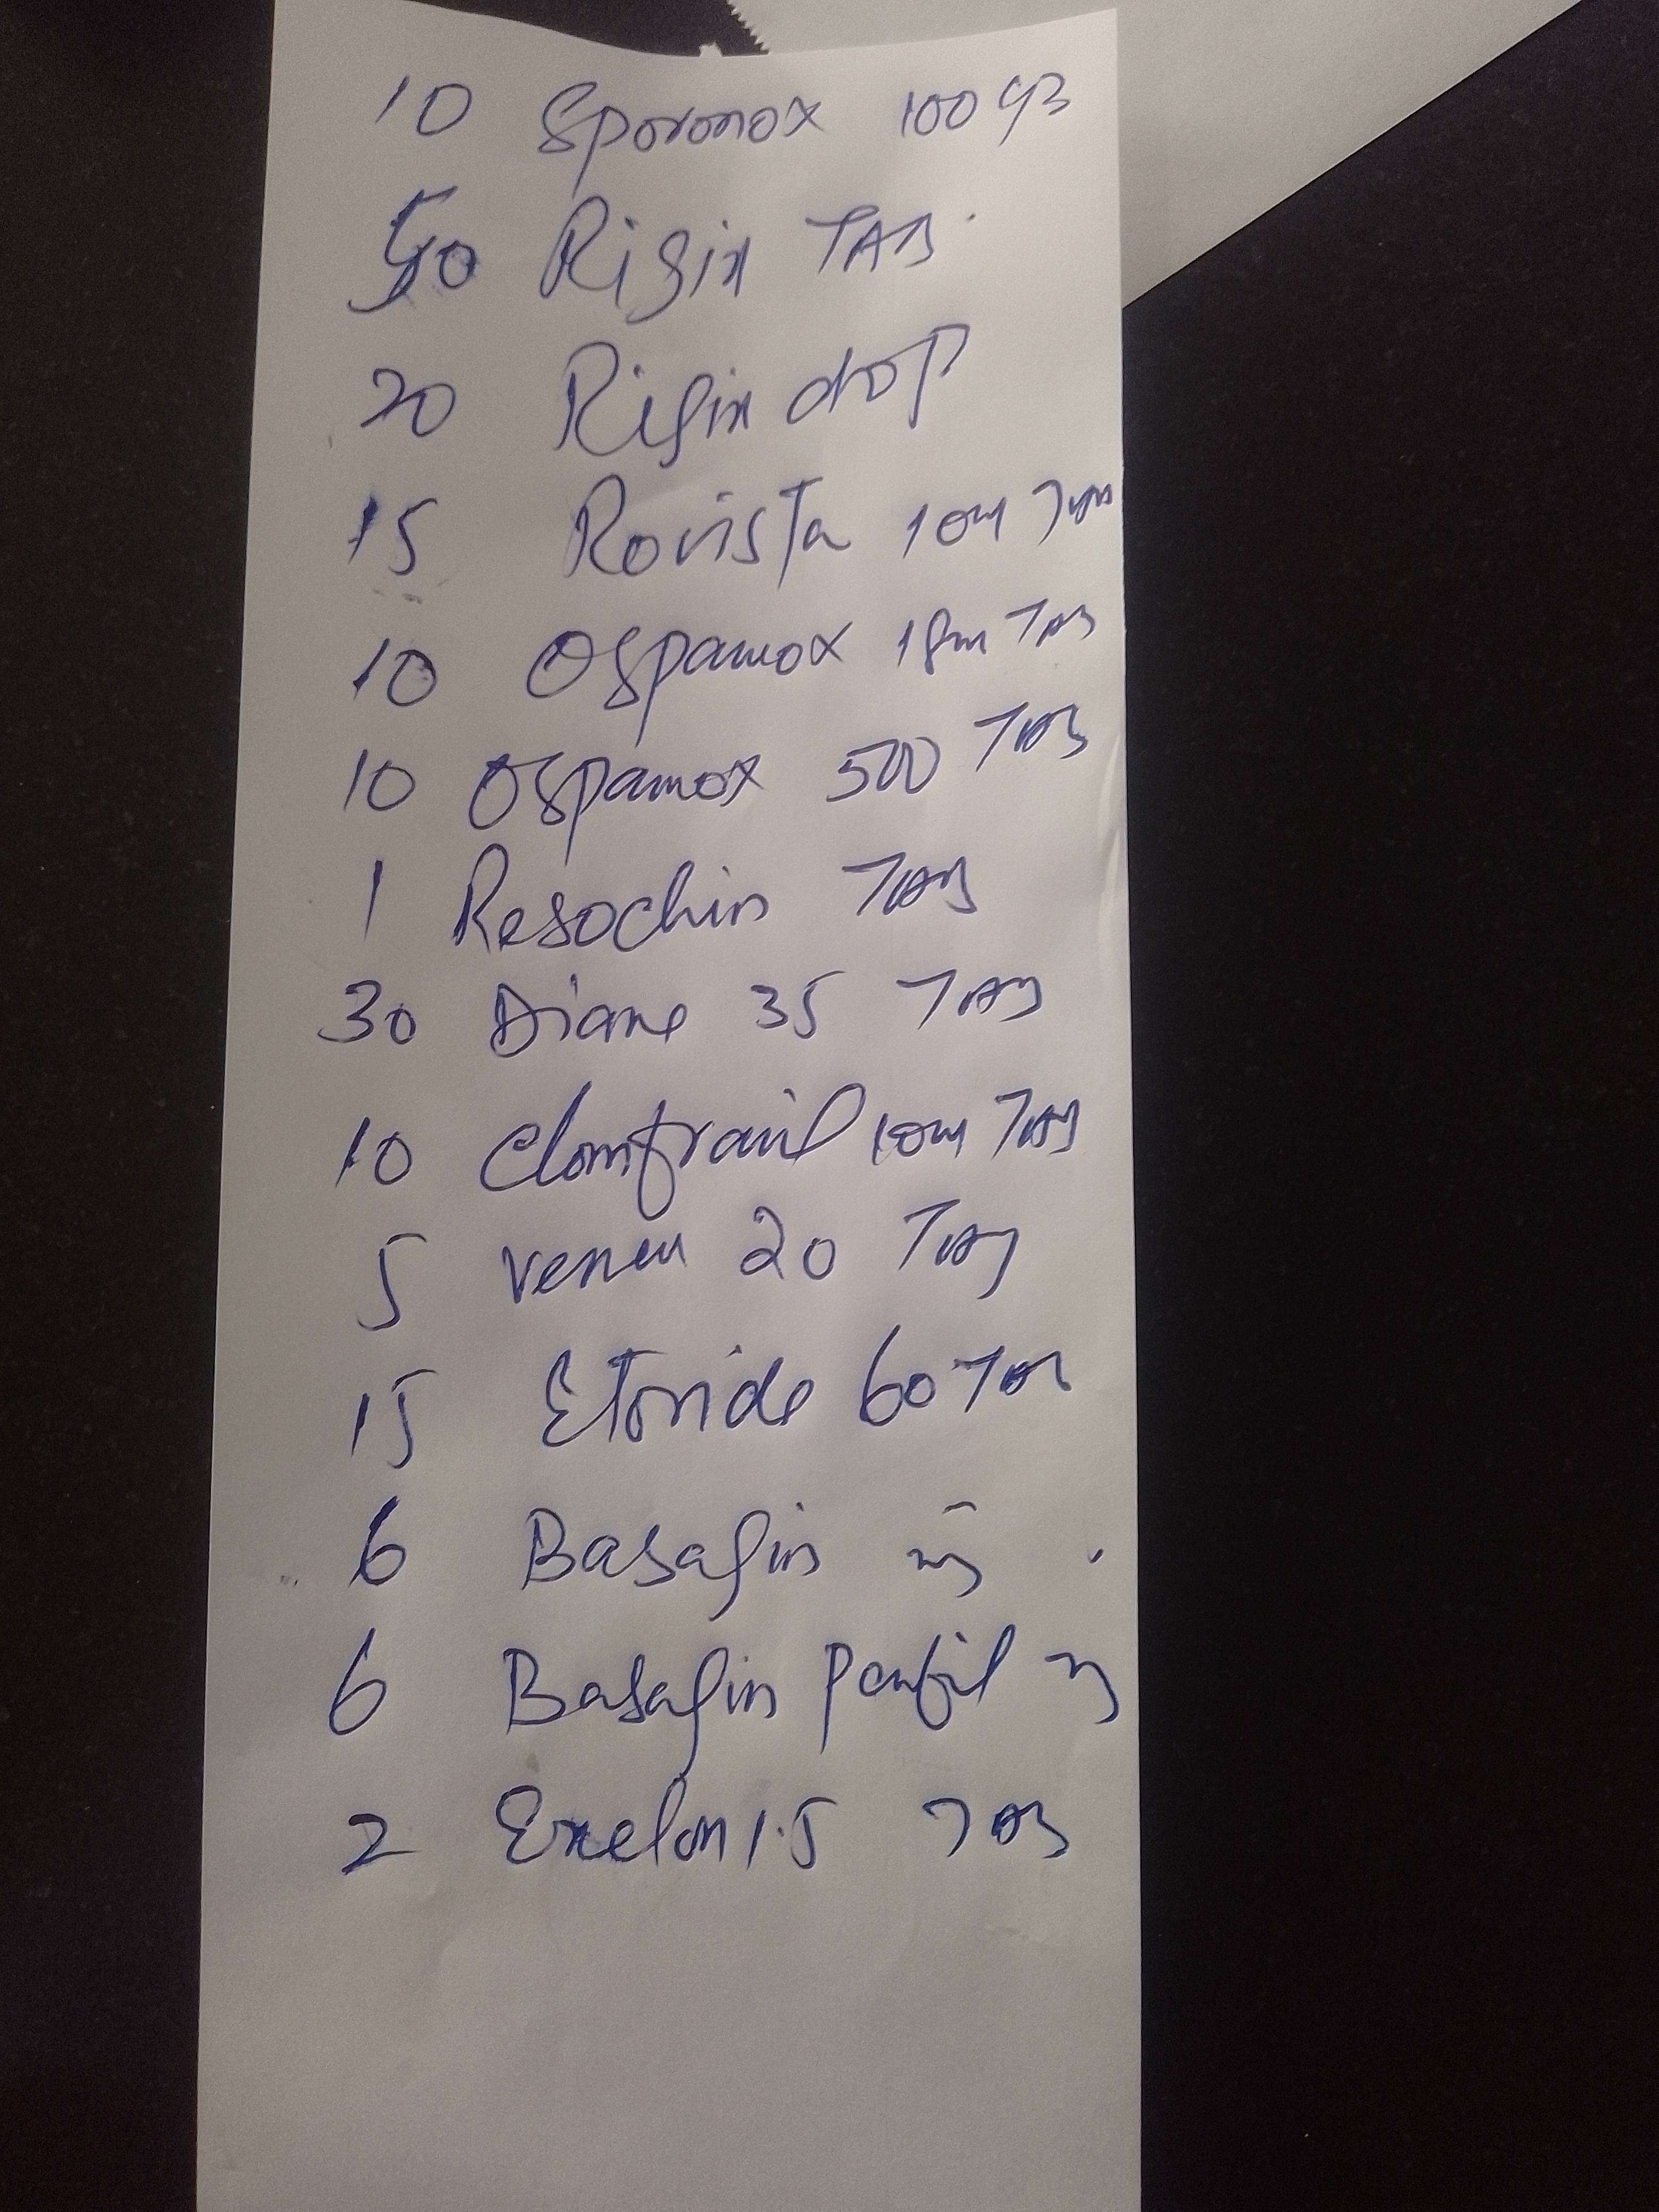 10 Sporonox 100 cap
50 Rigix TAB.
20 Rigix drop
15 Rovista 10m Tab
10 Ospamox 1gm Tab
10 Ospamox 500 Tab
1 Resochin Tab
30 Diane 35 Tab
10 Clomfranil 10m Tab
5 20 Tab
15 Etoride 60 Tab
6 Basagin inj
6 Basagin penfil inj
2 Exelon 1.5 Tab